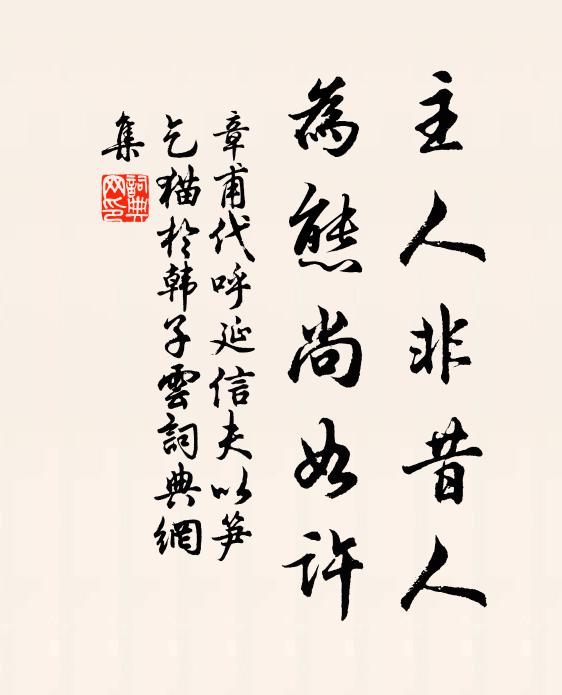 主人非昔人
為態尚如許
章甫代呼延信夫以笋
乞猫於韩子雲詞典網
集
詞典
网印